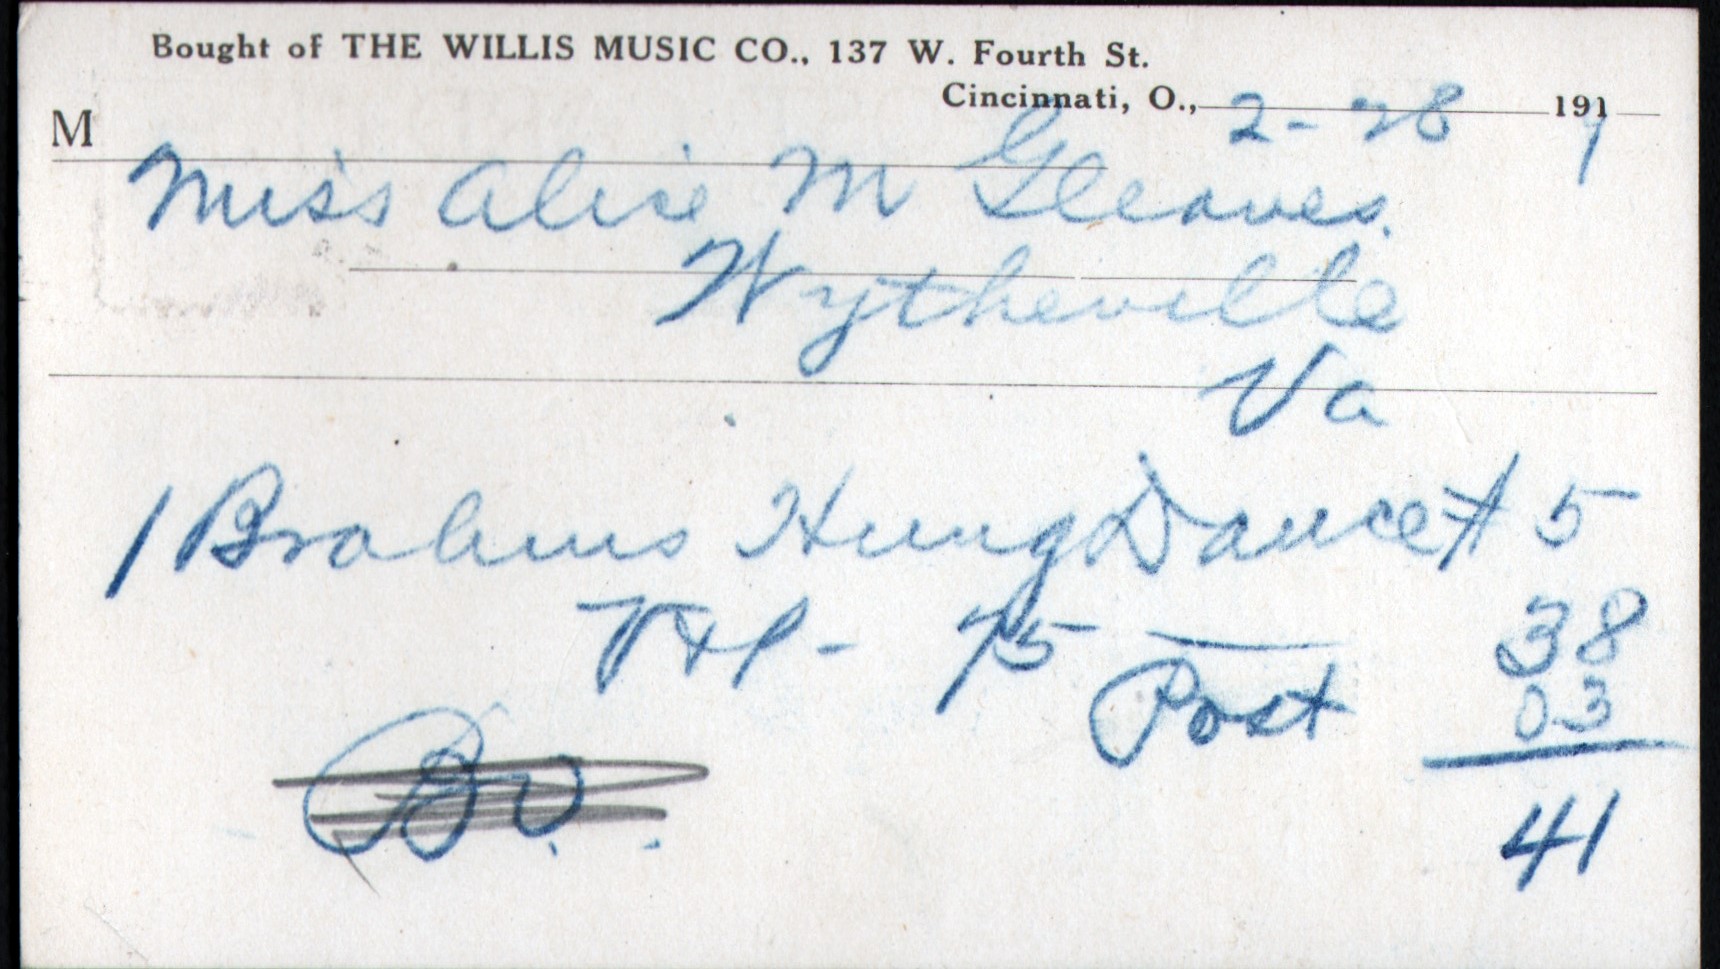 Bought of THE WILLIS MUSIC CO., 137 W. Fourth St.
Cincinnati, O., 2-28 191 1
M
Miss Alise M Gleaves.
Wytheville
Va
1 Brahms Hung Dance # 5
V+P - 75 38
Post 03
41